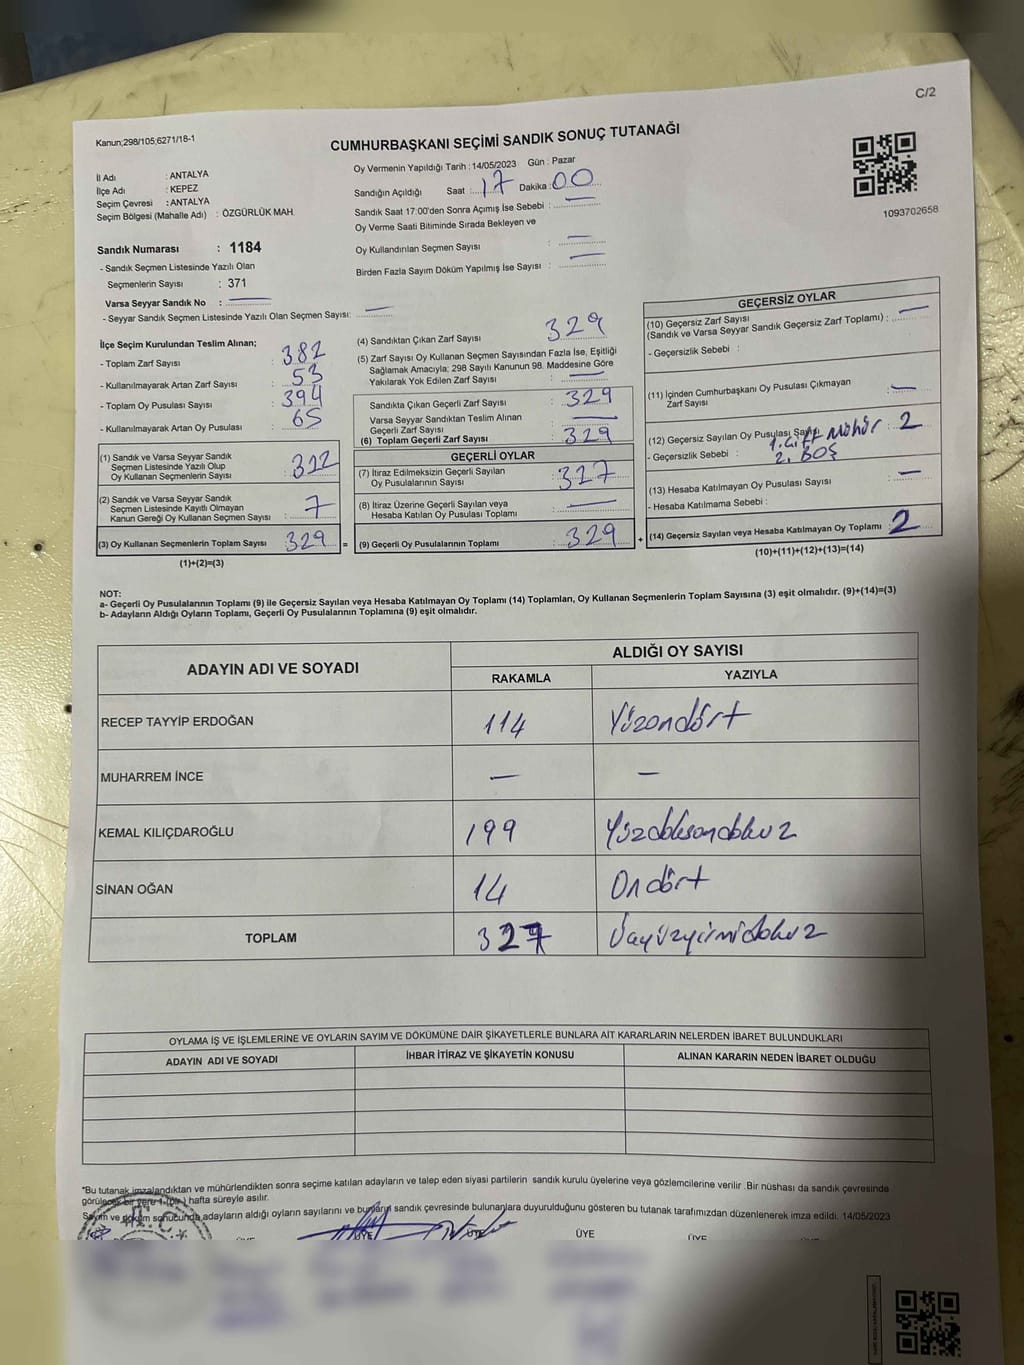 C/2
Kanun;298/105;6271/18-1
CUMHURBAŞKANI SEÇİMİ SANDIK SONUÇ TUTANAĞI
İl Adı : ANTALYA
İlçe Adı : KEPEZ
Seçim Çevresi : ANTALYA
Seçim Bölgesi (Mahalle Adı) : ÖZGÜRLÜK MAH.
Sandık Numarası : 1184
- Sandık Seçmen Listesinde Yazılı Olan
Seçmenlerin Sayısı : 371
Varsa Seyyar Sandık No : —
- Seyyar Sandık Seçmen Listesinde Yazılı Olan Seçmen Sayısı: —
Oy Vermenin Yapıldığı Tarih : 14/05/2023 Gün : Pazar
Sandığın Açıldığı Saat : 17 Dakika : 00
Sandık Saat 17:00'den Sonra Açımış İse Sebebi : —
Oy Verme Saati Bitiminde Sırada Bekleyen ve
Oy Kullandırılan Seçmen Sayısı : —
Birden Fazla Sayım Döküm Yapılmış İse Sayısı : —
1093702658
İlçe Seçim Kurulundan Teslim Alınan;
- Toplam Zarf Sayısı : 382
- Kullanılmayarak Artan Zarf Sayısı : 53
- Toplam Oy Pusulası Sayısı : 394
- Kullanılmayarak Artan Oy Pusulası : 65
(1) Sandık ve Varsa Seyyar Sandık
Seçmen Listesinde Yazılı Olup
Oy Kullanan Seçmenlerin Sayısı : 322
(2) Sandık ve Varsa Seyyar Sandık
Seçmen Listesinde Kayıtlı Olmayan
Kanun Gereği Oy Kullanan Seçmen Sayısı : 7
(3) Oy Kullanan Seçmenlerin Toplam Sayısı : 329 =
(1)+(2)=(3)
(4) Sandıktan Çıkan Zarf Sayısı : 329
(5) Zarf Sayısı Oy Kullanan Seçmen Sayısından Fazla İse, Eşitliği
Sağlamak Amacıyla; 298 Sayılı Kanunun 98. Maddesine Göre
Yakılarak Yok Edilen Zarf Sayısı : —
Sandıkta Çıkan Geçerli Zarf Sayısı : 329
Varsa Seyyar Sandıktan Teslim Alınan
Geçerli Zarf Sayısı : —
(6) Toplam Geçerli Zarf Sayısı : 329
GEÇERLİ OYLAR
(7) İtiraz Edilmeksizin Geçerli Sayılan
Oy Pusulalarının Sayısı : 327
(8) İtiraz Üzerine Geçerli Sayılan veya
Hesaba Katılan Oy Pusulası Toplamı : —
(9) Geçerli Oy Pusulalarının Toplamı : 329 +
GEÇERSİZ OYLAR
(10) Geçersiz Zarf Sayısı
(Sandık ve Varsa Seyyar Sandık Geçersiz Zarf Toplamı) : —
- Geçersizlik Sebebi :
(11) İçinden Cumhurbaşkanı Oy Pusulası Çıkmayan
Zarf Sayısı : —
(12) Geçersiz Sayılan Oy Pusulası Sayısı : 2
- Geçersizlik Sebebi : 1. Çift Mühür
2. BOŞ
(13) Hesaba Katılmayan Oy Pusulası Sayısı : —
- Hesaba Katılmama Sebebi :
(14) Geçersiz Sayılan veya Hesaba Katılmayan Oy Toplamı : 2
(10)+(11)+(12)+(13)=(14)
NOT:
a- Geçerli Oy Pusulalarının Toplamı (9) ile Geçersiz Sayılan veya Hesaba Katılmayan Oy Toplamı (14) Toplamları, Oy Kullanan Seçmenlerin Toplam Sayısına (3) eşit olmalıdır. (9)+(14)=(3)
b- Adayların Aldığı Oyların Toplamı, Geçerli Oy Pusulalarının Toplamına (9) eşit olmalıdır.
ADAYIN ADI VE SOYADI
ALDIĞI OY SAYISI
RAKAMLA YAZIYLA
RECEP TAYYİP ERDOĞAN 114 Yüzondört
MUHARREM İNCE — —
KEMAL KILIÇDAROĞLU 199 Yüzdoksandokuz
SİNAN OĞAN 14 Ondört
TOPLAM 327 Üçyüzyirmidokuz
OYLAMA İŞ VE İŞLEMLERİNE VE OYLARIN SAYIM VE DÖKÜMÜNE DAİR ŞİKAYETLERLE BUNLARA AİT KARARLARIN NELERDEN İBARET BULUNDUKLARI
ADAYIN ADI VE SOYADI İHBAR İTİRAZ VE ŞİKAYETİN KONUSU ALINAN KARARIN NEDEN İBARET OLDUĞU
*Bu tutanak imzalandıktan ve mühürlendikten sonra seçime katılan adayların ve talep eden siyasi partilerin sandık kurulu üyelerine veya gözlemcilerine verilir .Bir nüshası da sandık çevresinde
görülecek bir yere 1 (bir) hafta süreyle asılır.
Sayım ve döküm sonucunda adayların aldığı oyların sayılarını ve bunların sandık çevresinde bulunanlara duyurulduğunu gösteren bu tutanak tarafımızdan düzenlenerek imza edildi. 14/05/2023
T.C.
ÜYE ÜYE ÜYE ÜYE ÜYE